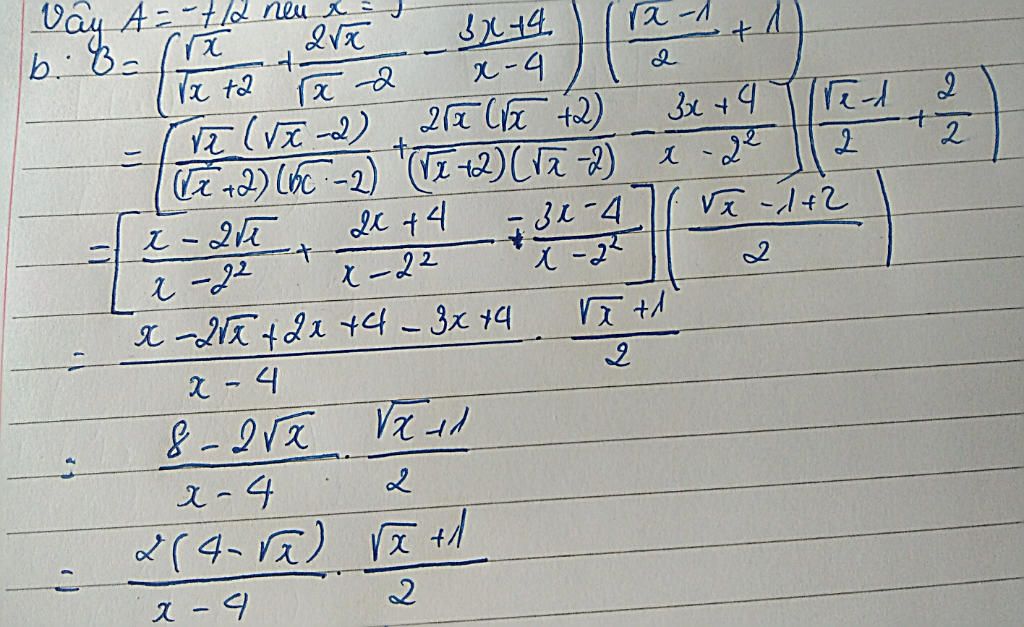 Vậy A = -7/2 nếu x = 
b: B = (√x/(√x+2) + 2√x/(√x-2) - (3x+4)/(x-4)) ((√x-1)/2 + 1)
= [√x(√x-2)/((√x+2)(√x-2)) + 2√x(√x+2)/((√x+2)(√x-2)) - (3x+4)/(x-2²)] ((√x-1)/2 + 2/2)
= [(x-2√x)/(x-2²) + (2x+4)/(x-2²) + (-3x-4)/(x-2²)] ((√x-1+2)/2)
= (x-2√x+2x+4-3x+4)/(x-4) . (√x+1)/2
= (8-2√x)/(x-4) . (√x+1)/2
= 2(4-√x)/(x-4) . (√x+1)/2